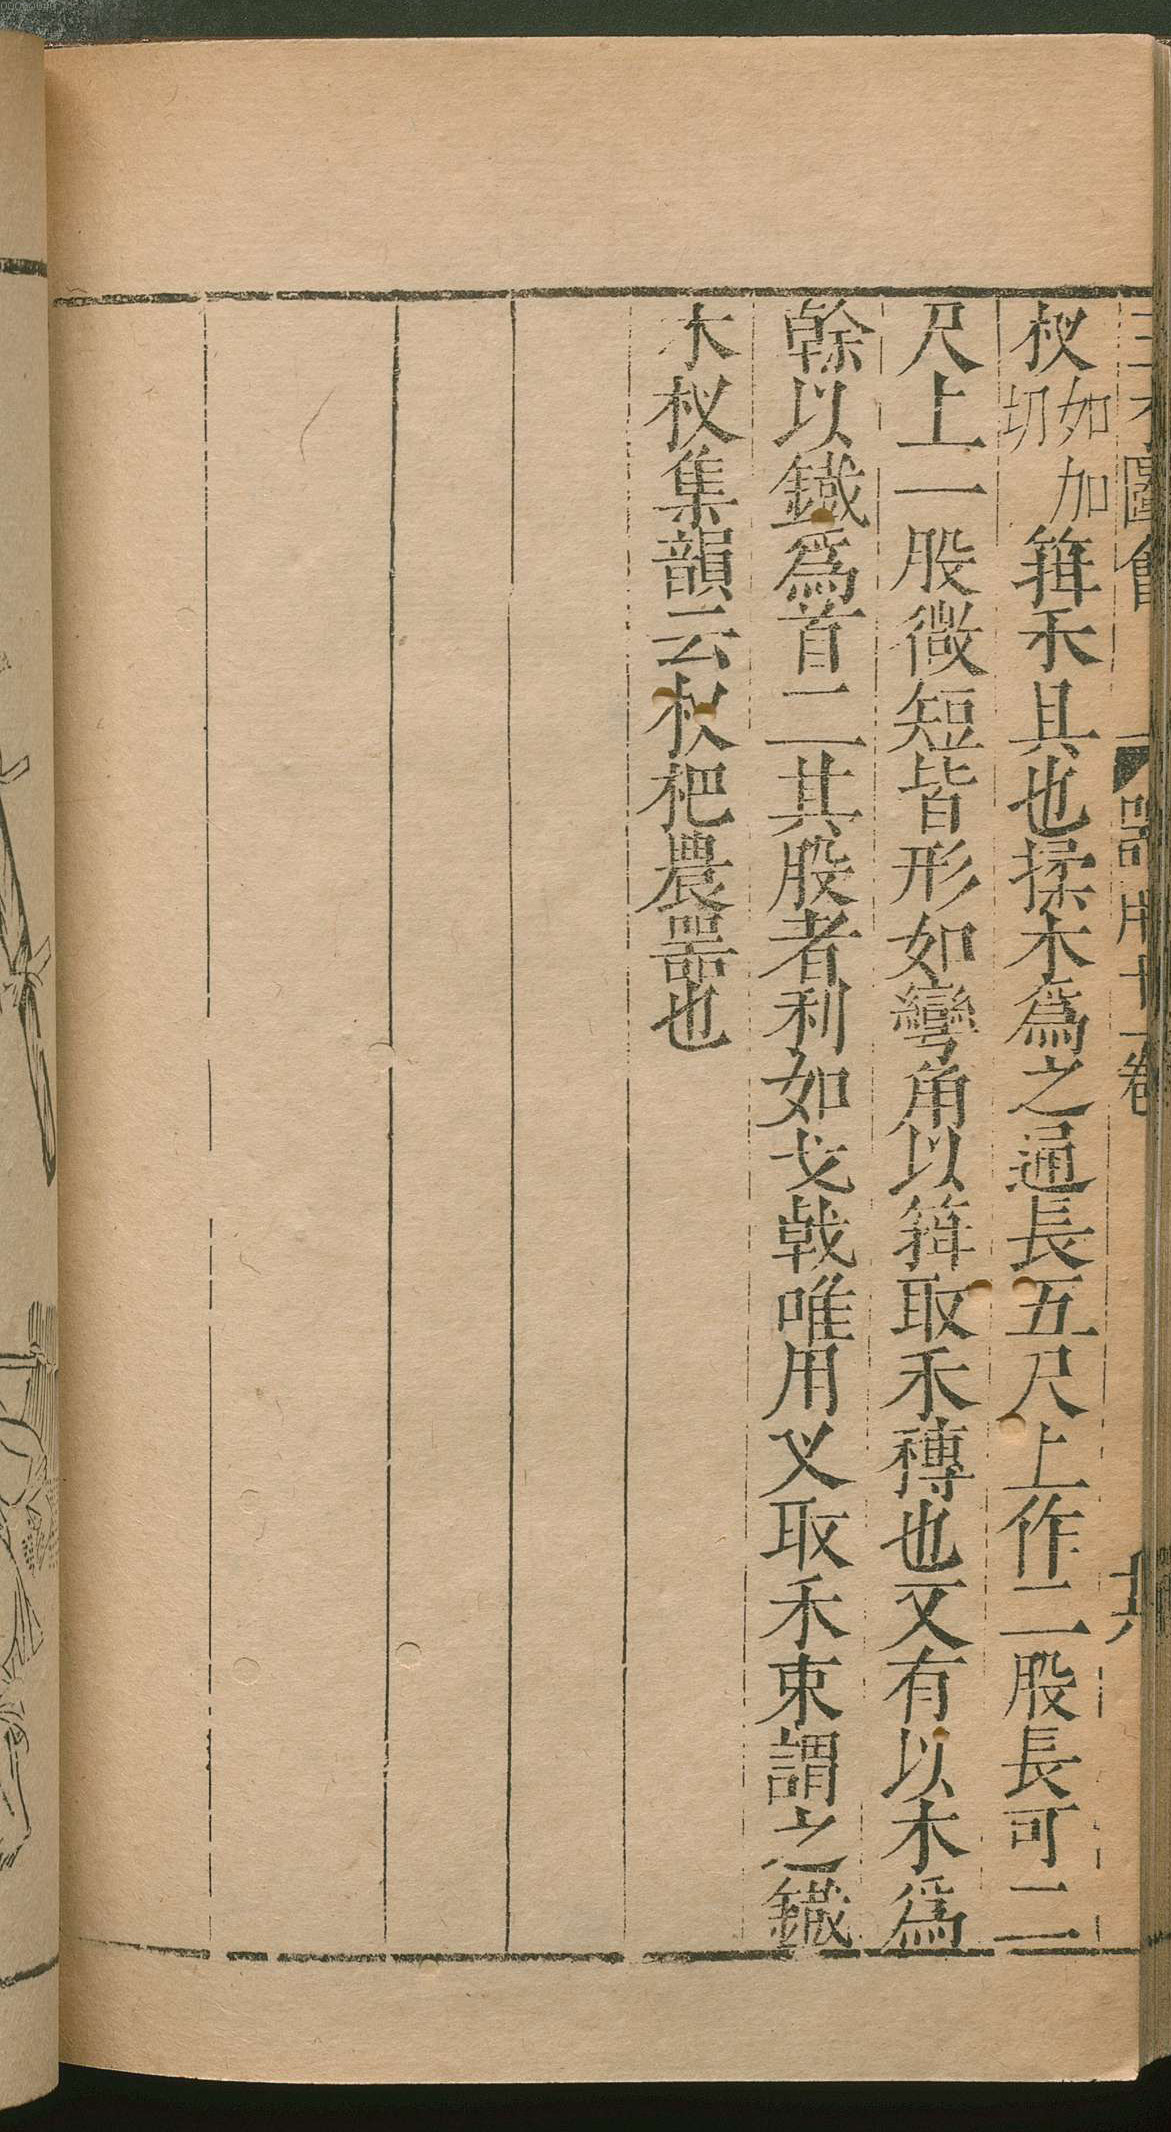 三才圖會 器用十一卷 共
杈如加切 䈕禾具也揉木爲之通長五尺上作二股長可二
尺上一股微短皆形如彎角以䈕取禾䅵也又有以木爲
幹以鐵爲首二其股者利如戈戟唯用叉取禾束謂之鐵
木杈集韻云杈杷農器也